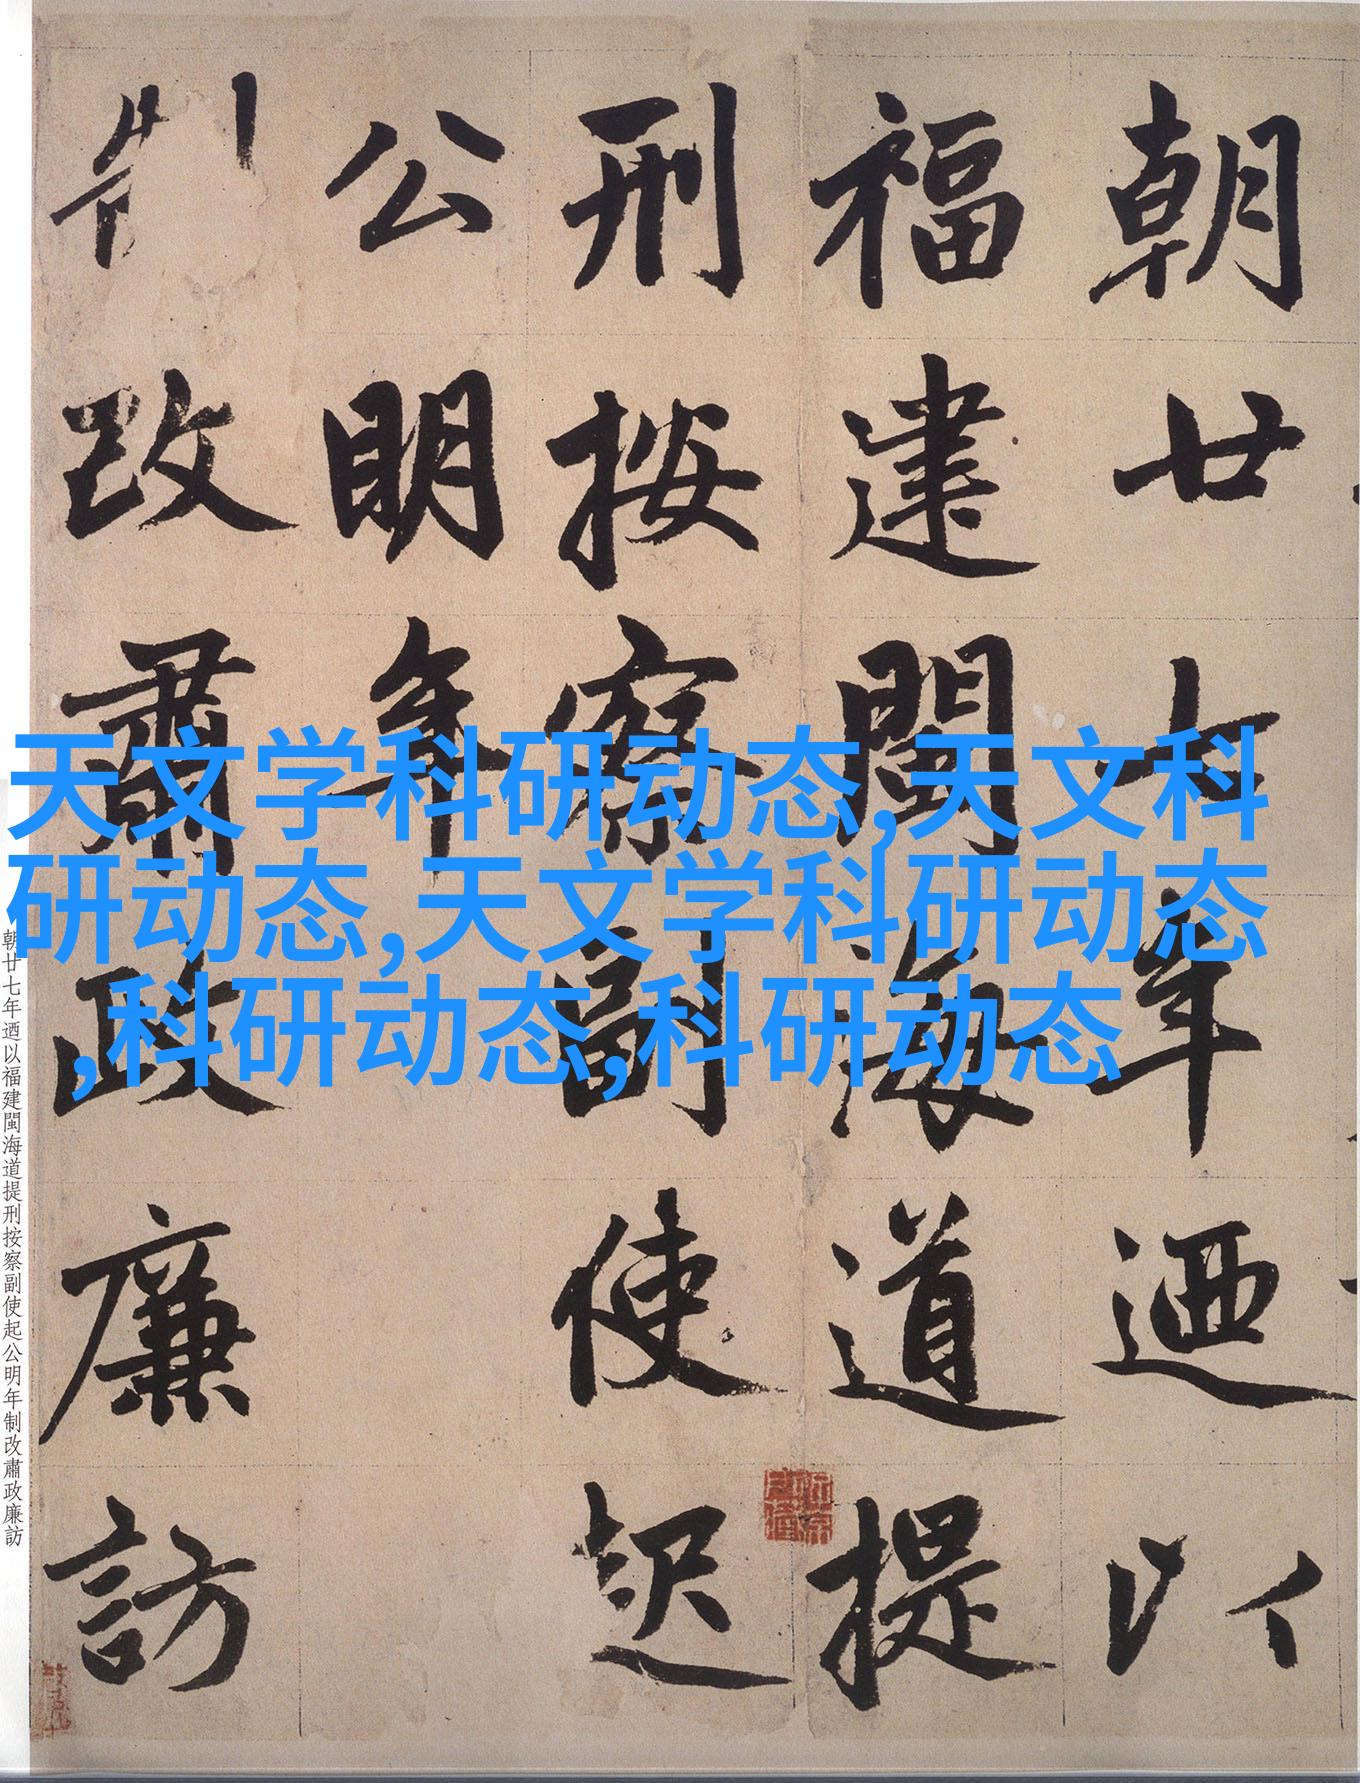 朝廿七年迺以
福建閩海道提
刑按察副使起
公明年
制改肅政廉訪
天文学科研动态,天文科
研动态,天文学科研动态
,科研动态,科研动态
朝廿七年迺以福建閩海道提刑按察副使起公明年制改肅政廉訪